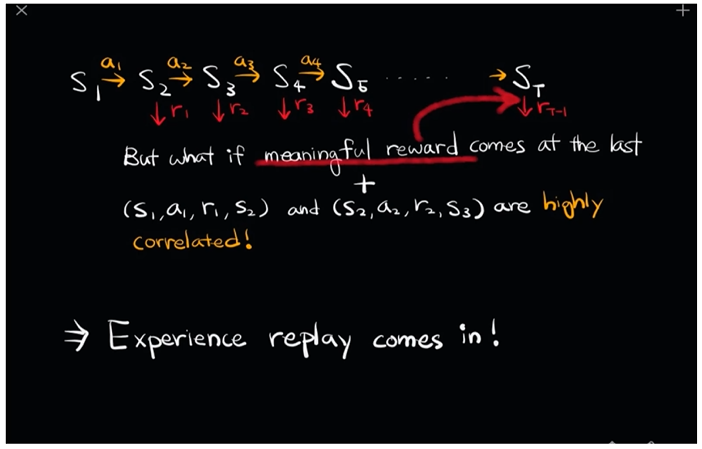 S₁ →a₁ S₂ →a₂ S₃ →a₃ S₄ →a₄ S₅ ······ → S_T
↓r₁ ↓r₂ ↓r₃ ↓r₄ ↓r_T-1
But what if meaningful reward comes at the last
+
(S₁, a₁, r₁, S₂) and (S₂, a₂, r₂, S₃) are highly
correlated!
⇒ Experience replay comes in!